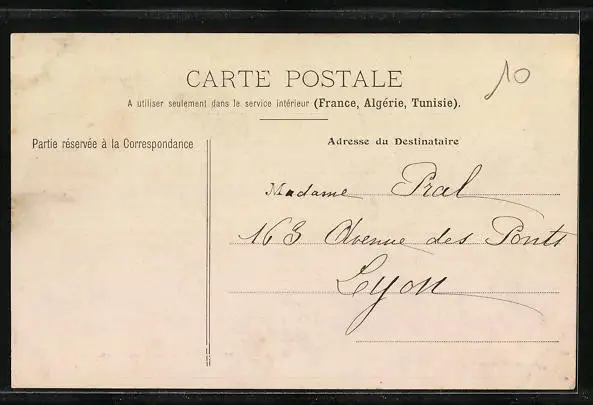 10
CARTE POSTALE
A utiliser seulement dans le service intérieur (France, Algérie, Tunisie).
Partie réservée à la Correspondance
Adresse du Destinataire
Madame Pral
163 Avenue des Ponts
Lyon